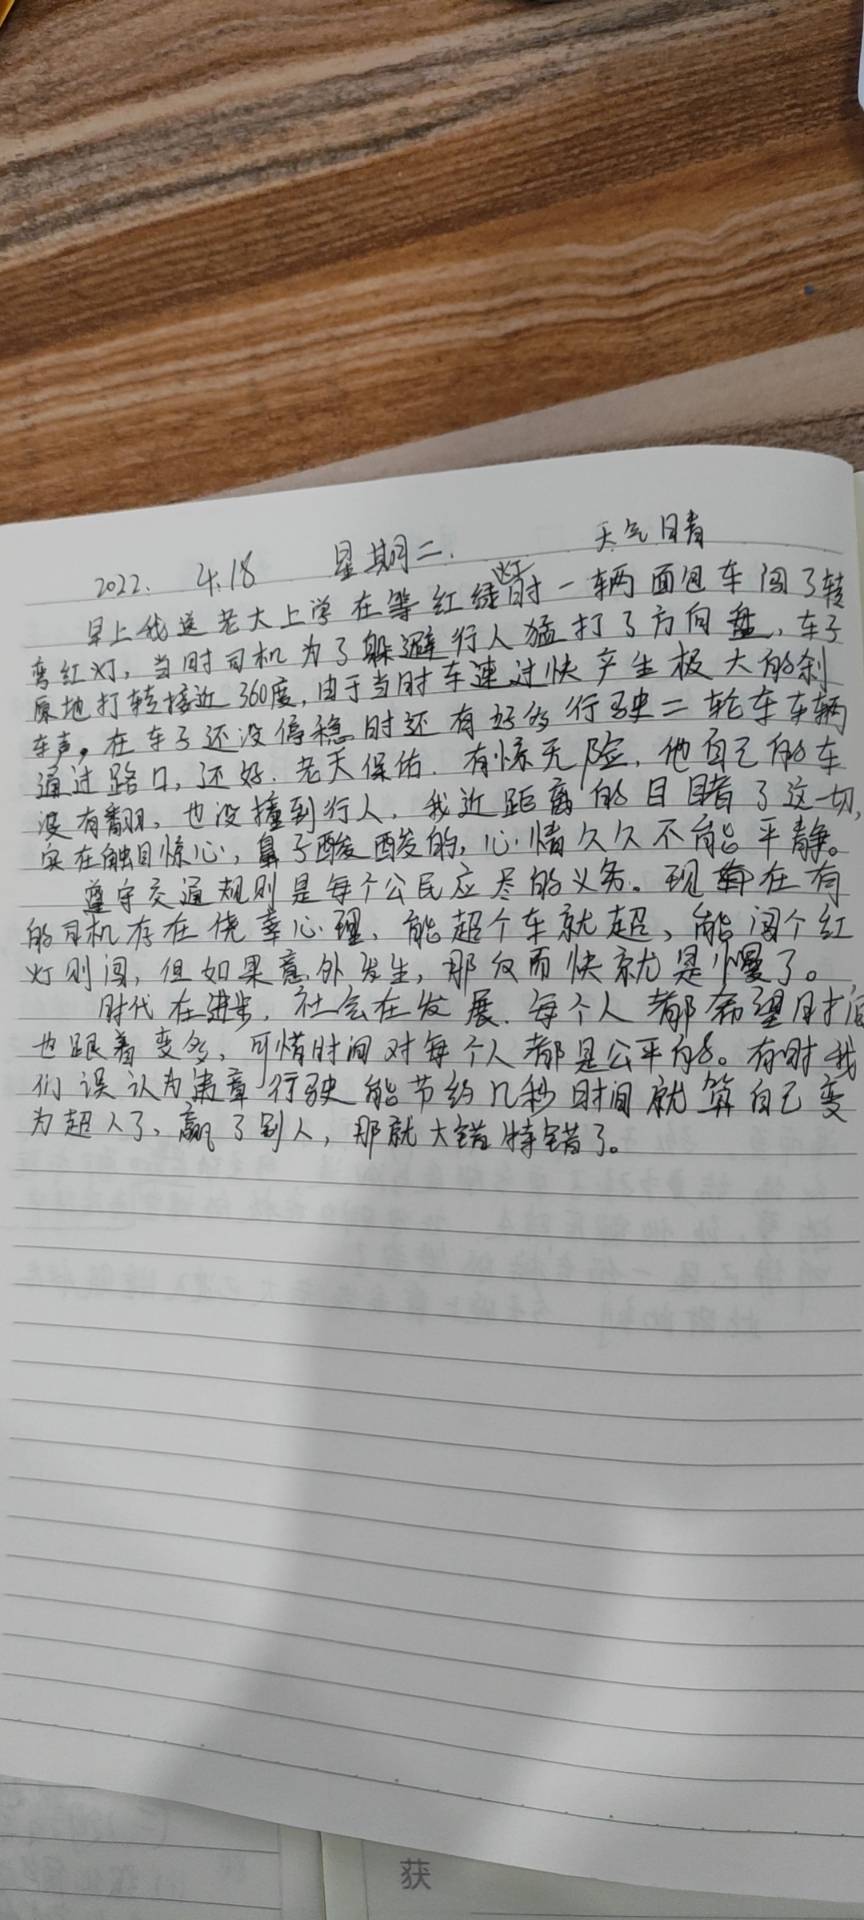 2022. 4.18 星期二. 天气晴
早上我送老大上学在等红绿灯时一辆面包车闯了转
弯红灯,当时司机为了躲避行人猛打了方向盘,车子
原地打转接近360度,由于当时车速过快产生极大的刹
车声。在车子还没停稳时还有好多行驶二轮车车辆
通过路口,还好.老天保佑.有惊无险,他自己的车
没有翻,也没撞到行人,我近距离的目睹了这一切,
实在触目惊心,鼻子酸酸的,心情久久不能平静。
遵守交通规则是每个公民应尽的义务。现在有
的司机存在侥幸心理、能超个车就超、能闯个红
灯则闯,但如果意外发生,那反而快就是慢了。
时代在进步,社会在发展.每个人都希望时间
也跟着变多,可惜时间对每个人都是公平的。有时我
们误认为违章行驶能节约几秒时间就算自己变
为超人了、赢了别人,那就大错特错了。
获